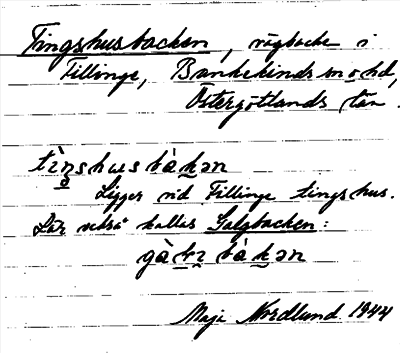 Tingshusbacken, vägbacke i
Tillinge, Bankekinds sn o hd,
Östergötlands län.
tìŋshusbàkən
Ligger vid Tillinge tingshus.
Lär också kallas Galgbacken:
Maja Nordlund 1944